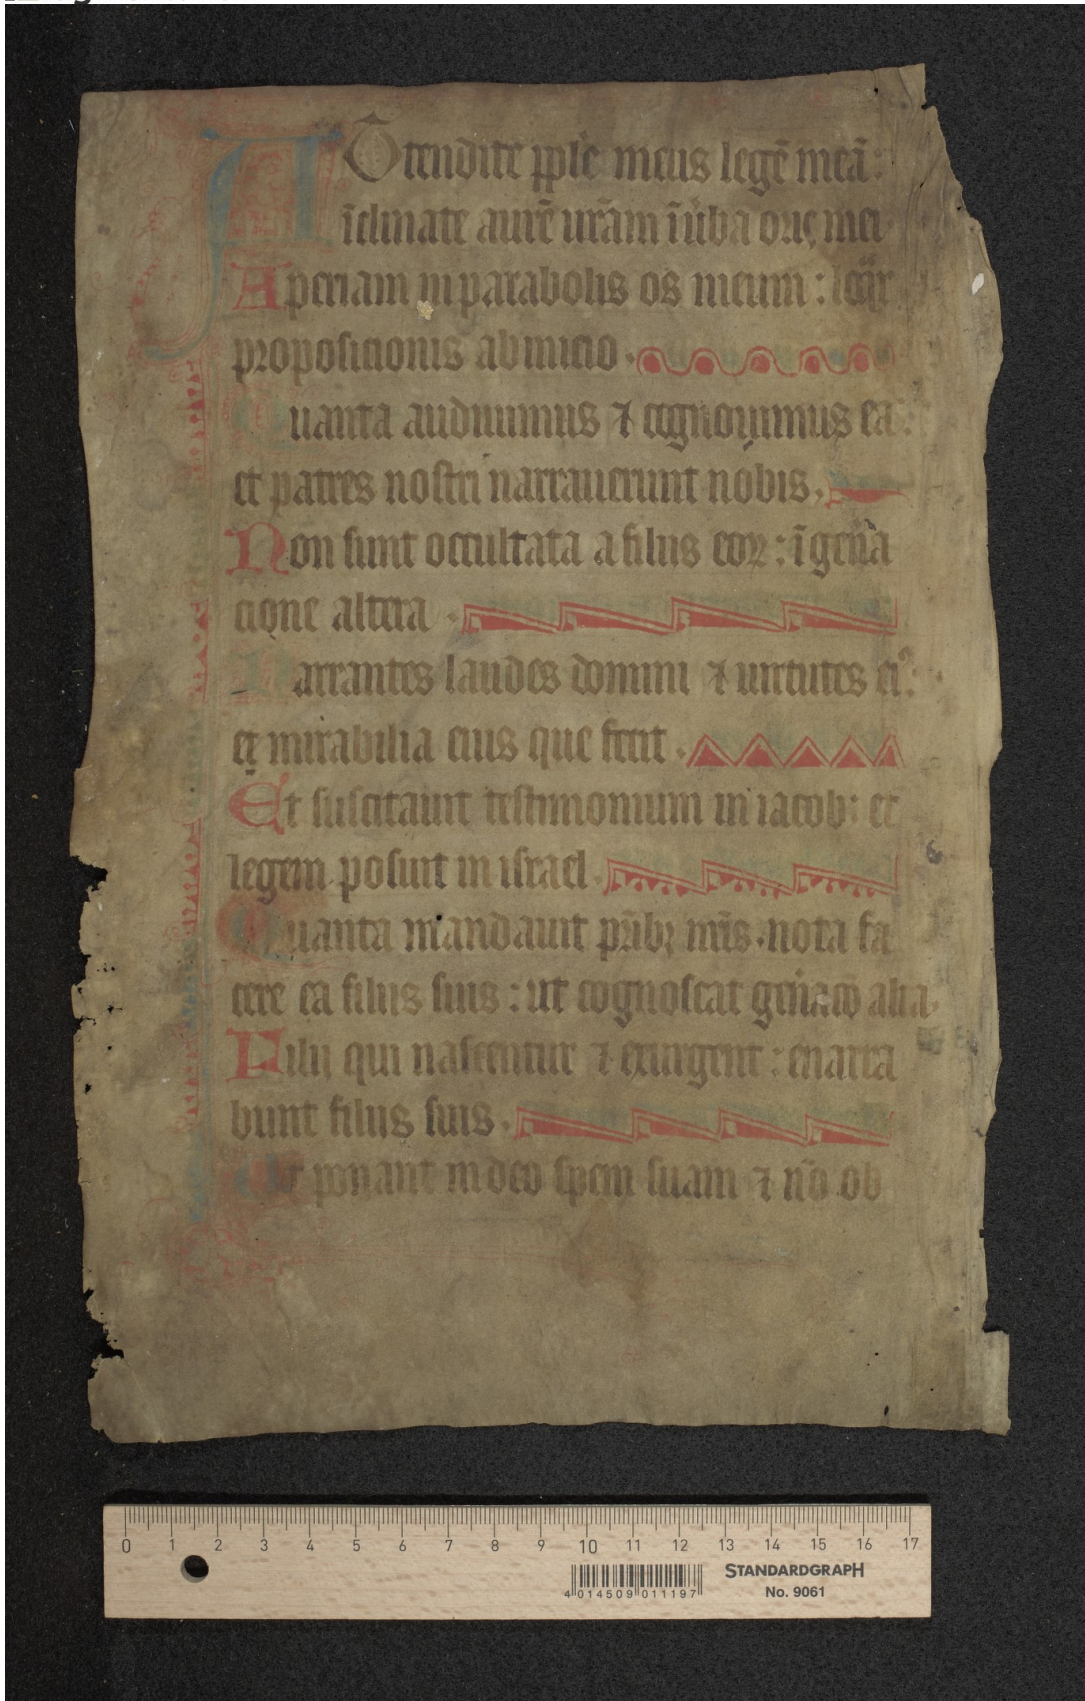 ATtendite pple meus legē meā:
īclinate aurē urām ī ūba oris mei
Aperiam in parabolis os meum: loq̄r
proposicionis ab inicio.
Quanta audiuimus ⁊ cognouimus ea:
et patres nostri narrauerunt nobis.
Non sunt occultata a filiis eoꝝ: ī genera
cione altera.
Narrantes laudes domini ⁊ uirtutes eiꝰ:
et mirabilia eius que fecit.
Et suscitauit testimonium in iacob: et
legem posuit in israel.
Quanta mandauit pr̄ibꝫ nr̄is. nota fa
cere ea filiis suis: ut cognoscat gn̄acō alta.
Filii qui nascentur ⁊ exurgent: enarra
bunt filiis suis.
Ut ponant in deo spem suam ⁊ nō ob
0 1 2 3 4 5 6 7 8 9 10 11 12 13 14 15 16 17
STANDARDGRAPH
No. 9061
4 014509 011197